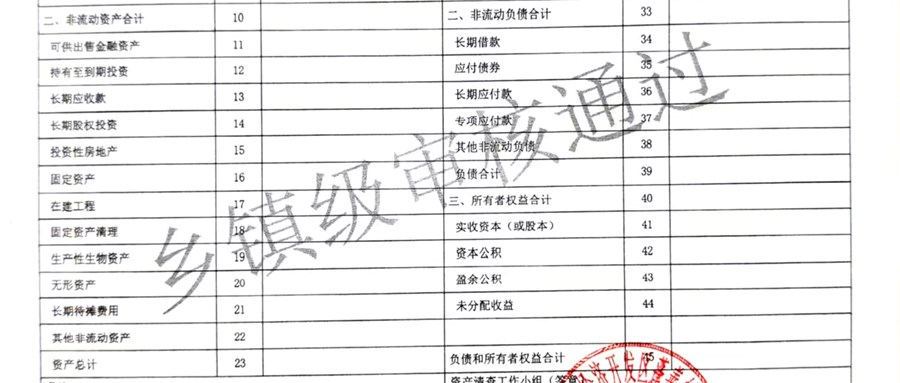 二、非流动资产合计 10 二、非流动负债合计 33
可供出售金融资产 11 长期借款 34
持有至到期投资 12 应付债券 35
长期应收款 13 长期应付款 36
长期股权投资 14 专项应付款 37
投资性房地产 15 其他非流动负债 38
固定资产 16 负债合计 39
在建工程 17 三、所有者权益合计 40
固定资产清理 18 实收资本（或股本） 41
生产性生物资产 19 资本公积 42
无形资产 20 盈余公积 43
长期待摊费用 21 未分配收益 44
其他非流动资产 22
资产总计 23 负债和所有者权益合计 45
资产清查工作小组（签章
乡镇级审核通过
济开发区